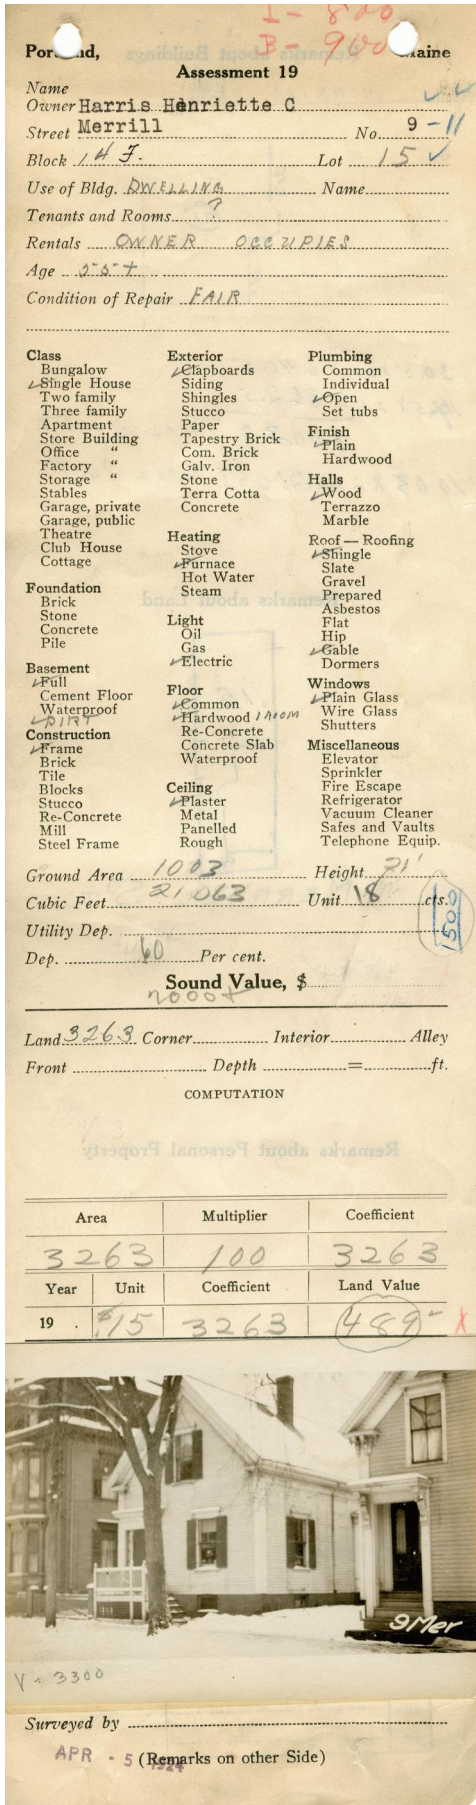 L - 800
B - 900
Portland, Maine
Assessment 19
Name
Owner Harris Henriette C
Street Merrill No. 9-11
Block 14 F. Lot 15
Use of Bldg. DWELLING Name
Tenants and Rooms ?
Rentals OWNER OCCUPIES
Age 55+
Condition of Repair FAIR
Class
Bungalow
Single House
Two family
Three family
Apartment
Store Building
Office "
Factory "
Storage "
Stables
Garage, private
Garage, public
Theatre
Club House
Cottage
Foundation
Brick
Stone
Concrete
Pile
Basement
Full
Cement Floor
Waterproof
DIRT
Construction
Frame
Brick
Tile
Blocks
Stucco
Re-Concrete
Mill
Steel Frame
Exterior
Clapboards
Siding
Shingles
Stucco
Paper
Tapestry Brick
Com. Brick
Galv. Iron
Stone
Terra Cotta
Concrete
Heating
Stove
Furnace
Hot Water
Steam
Light
Oil
Gas
Electric
Floor
Common
Hardwood 1 ROOM
Re-Concrete
Concrete Slab
Waterproof
Ceiling
Plaster
Metal
Panelled
Rough
Plumbing
Common
Individual
Open
Set tubs
Finish
Plain
Hardwood
Halls
Wood
Terrazzo
Marble
Roof — Roofing
Shingle
Slate
Gravel
Prepared
Asbestos
Flat
Hip
Gable
Dormers
Windows
Plain Glass
Wire Glass
Shutters
Miscellaneous
Elevator
Sprinkler
Fire Escape
Refrigerator
Vacuum Cleaner
Safes and Vaults
Telephone Equip.
Ground Area 1003 Height 21'
Cubic Feet 21063 Unit 18 cts.
1500
Utility Dep.
Dep. 60 Per cent.
Sound Value, $
Land 3263 Corner Interior Alley
Front Depth = ft.
COMPUTATION
Area Multiplier Coefficient
3263 100 3263
Year Unit Coefficient Land Value
19 . $.15 3263 489-
X
9 Mer
V - 3300
Surveyed by
APR - 5 1924
(Remarks on other Side)